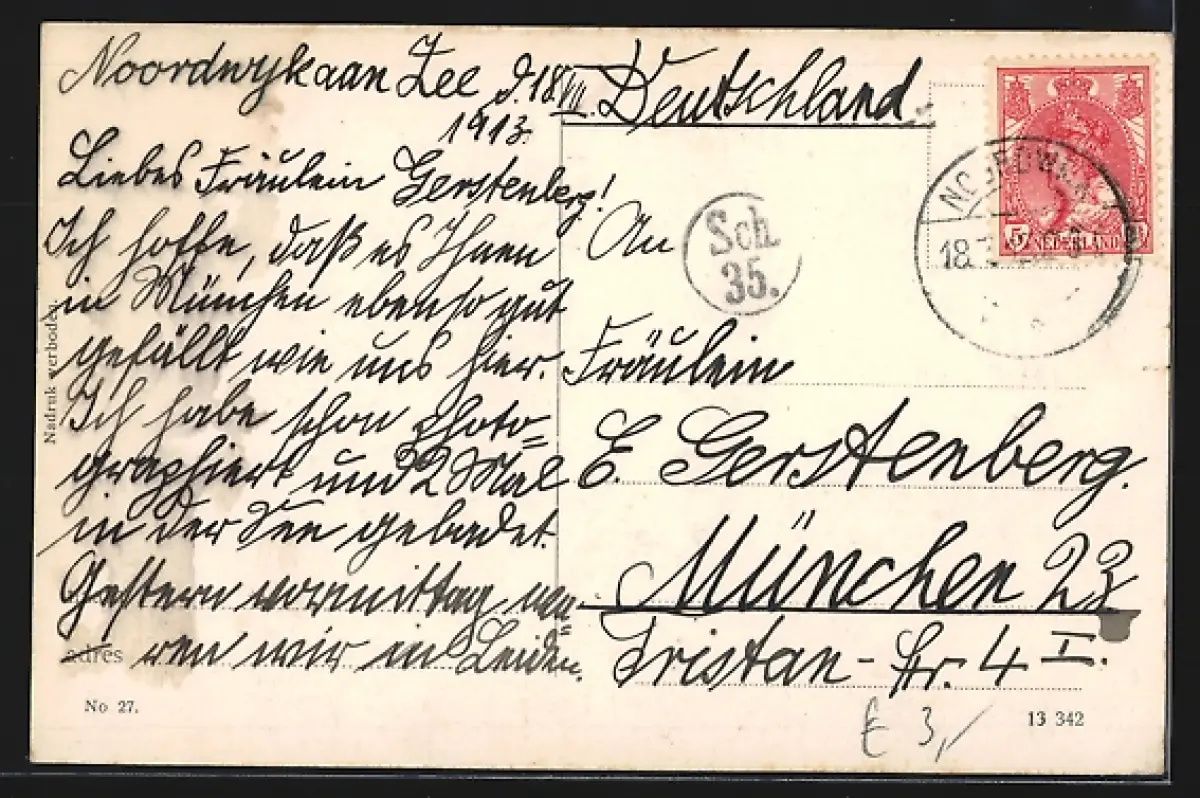 Noordwijk aan Zee d. 18. VII.
1913.
Liebes Fräulein Gerstenberg!
Ich hoffe, daß es Ihnen
in München ebenso gut
gefällt wie uns hier.
Ich habe schon photo=
graphiert und 2 Mal
in der See gebadet.
Gestern vormittag wa=
ren wir in Leiden.
Deutschland
An
Fräulein
E. Gerstenberg.
München 23
Tristan-Str. 4 I.
Sch.
35.
NOORDWIJK
18.7
5
NEDERLAND
Nadruk verboden
adres
No 27.
13 342
£ 3,-